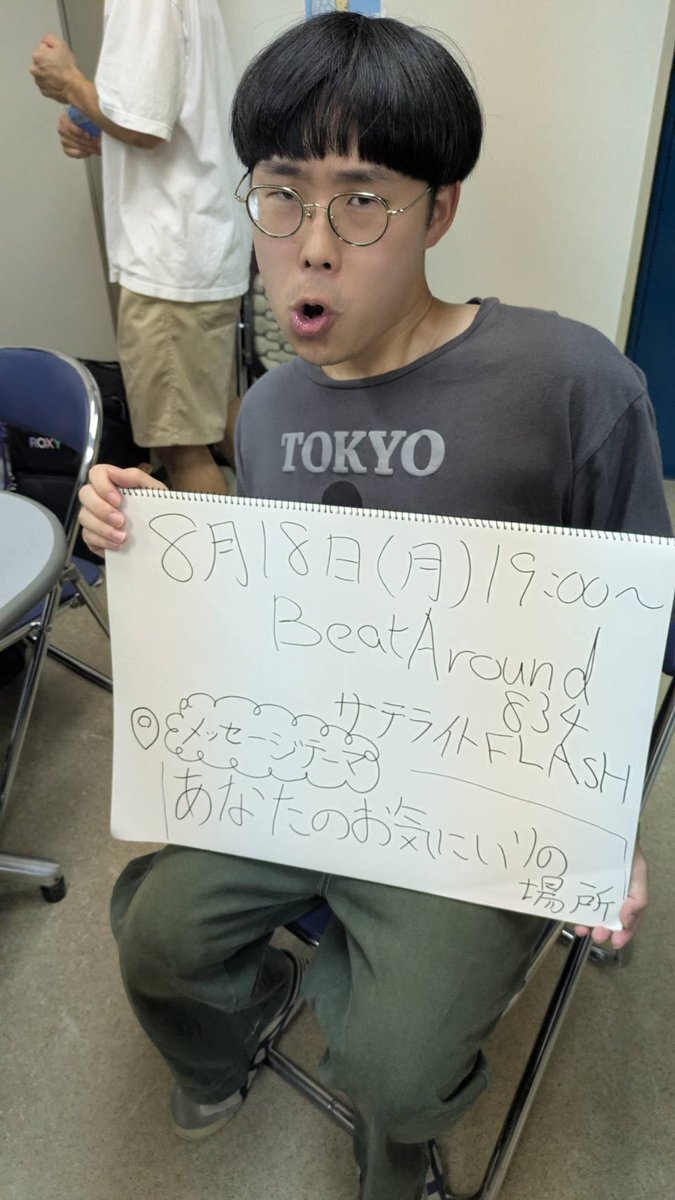 ROXY
TOKYO
8月18日(月)19:00〜
BeatAround
834
サテライトFLASH
メッセージテーマ
あなたのお気にいりの
場所